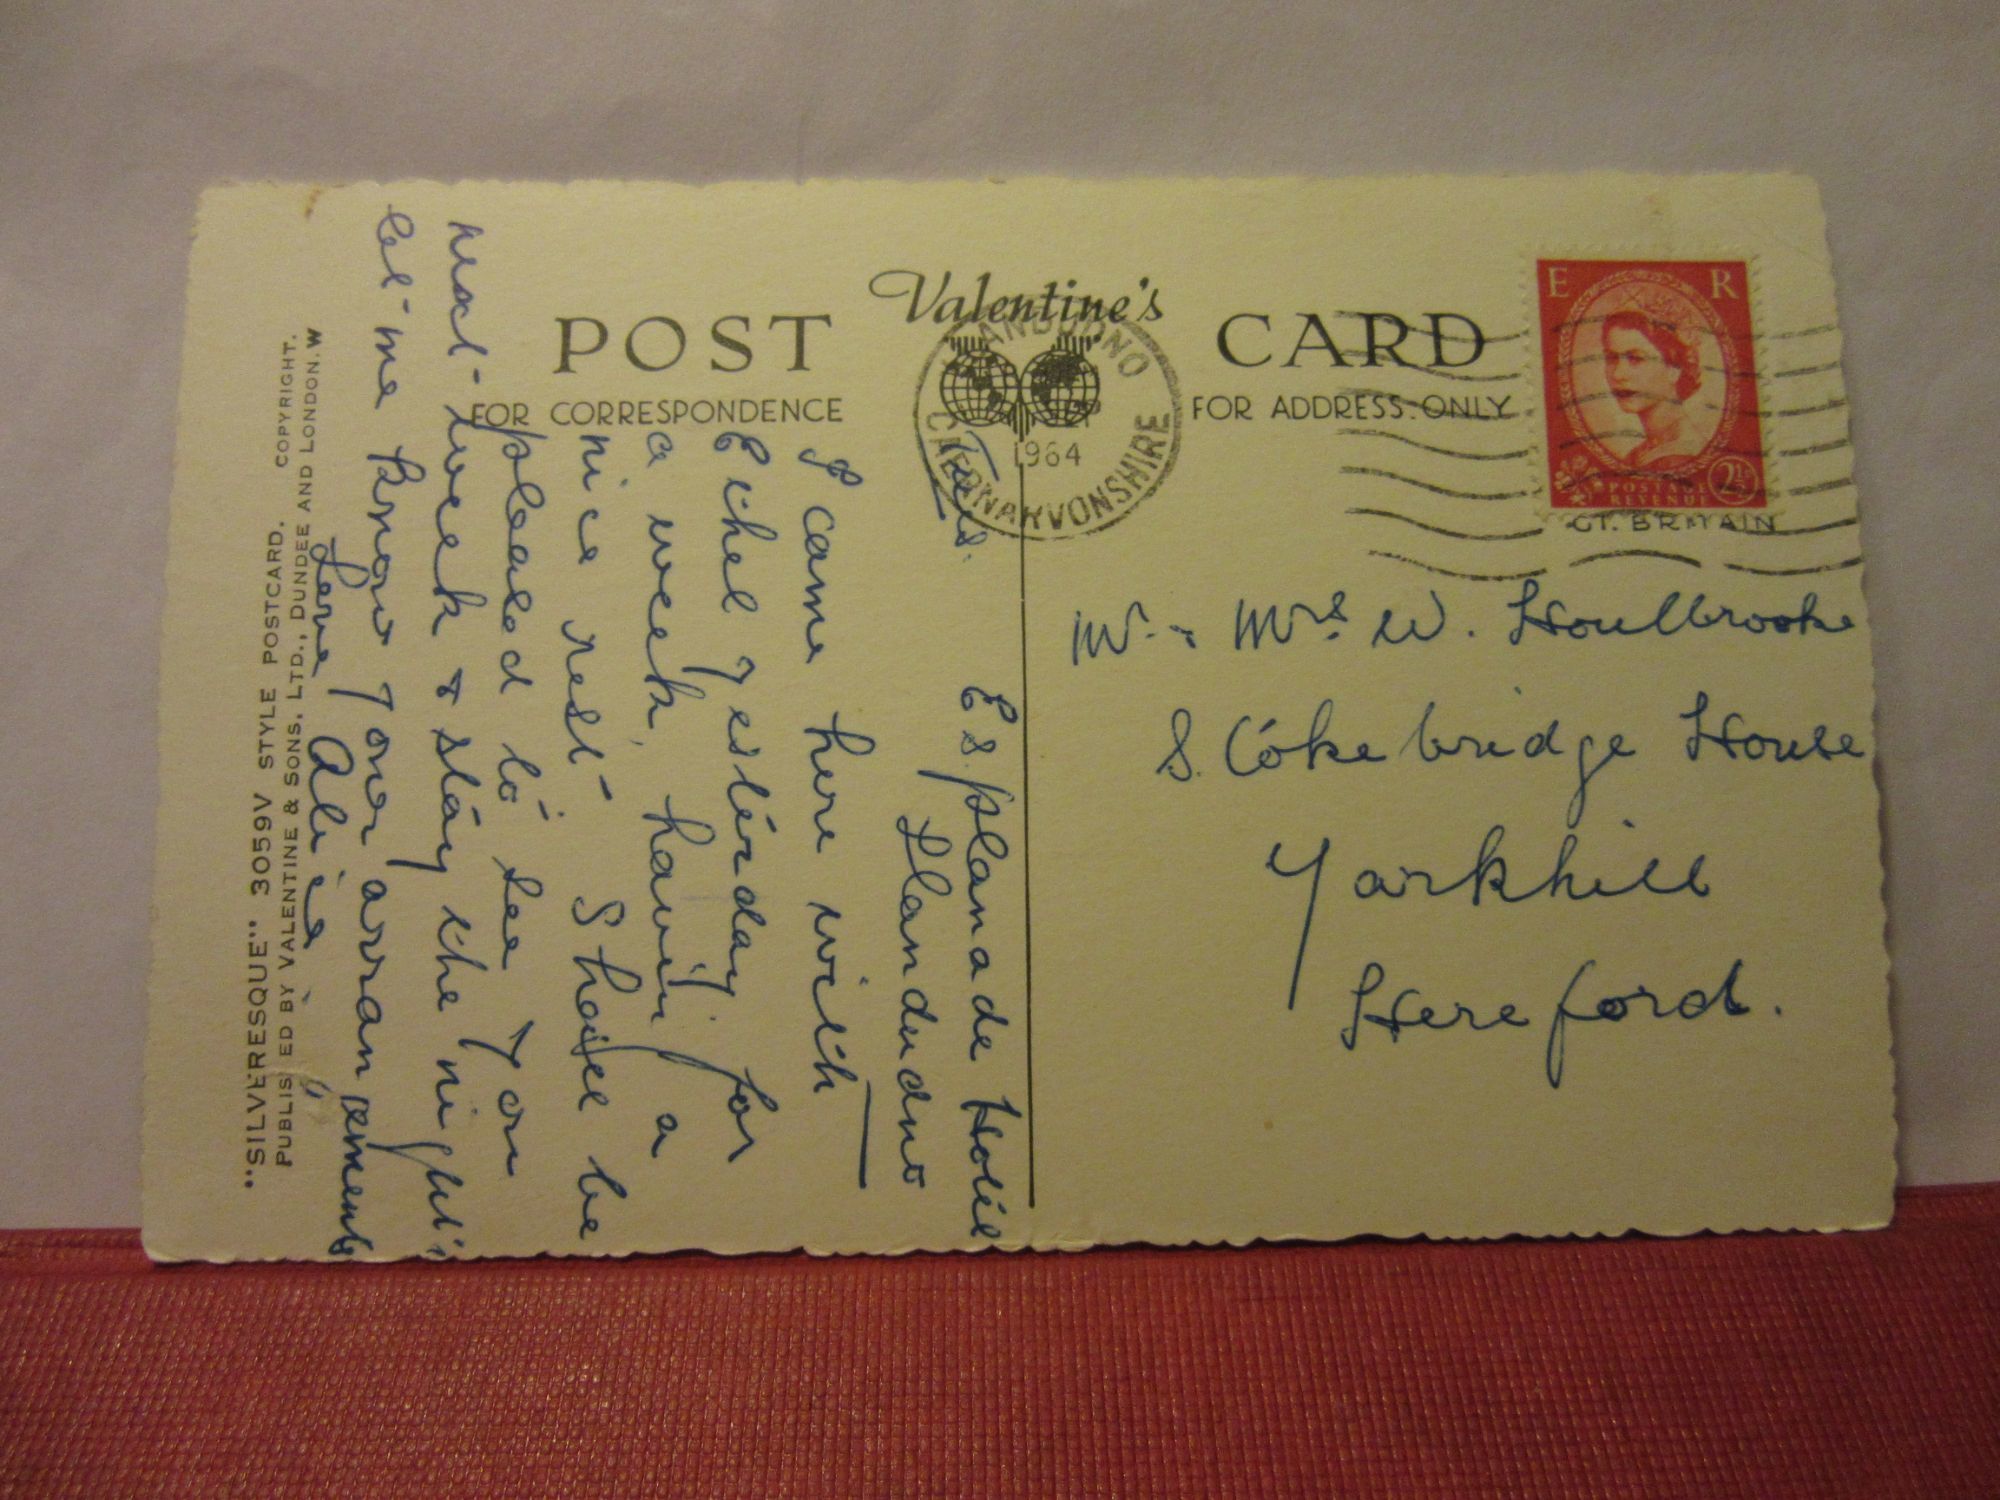 Valentine's
POST CARD
FOR CORRESPONDENCE
FOR ADDRESS ONLY
LLANDUDNO
CAERNARVONSHIRE
1964
E R
POSTAGE
REVENUE
2½
GT. BRITAIN
Mr. & Mrs. W. Houlbrooke
S. Cokebridge House
Yarkhill
Hereford.
Tues.
Esplanade Hotel
Llandudno
I came here with
Ethel yesterday for
a week, having a
nice rest Shall be
pleased to see you
next week & stay the night
let me know your arrangements
Love Alice
"SILVERESQUE" 3059V STYLE POSTCARD. COPYRIGHT.
PUBLISHED BY VALENTINE & SONS. LTD., DUNDEE AND LONDON. W